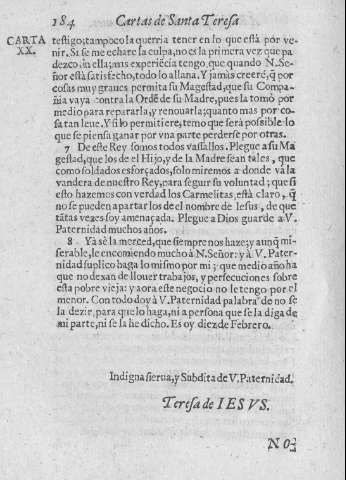 184 Cartas de Santa Teresa
CARTA XX.
testigo; tampoco la querria tener en lo que està por ve-
nir. Si se me echare la culpa, no es la primera vez que pa-
dezco sin ella; mas experiẽcia tengo, que quando N. Se-
ñor està satisfecho, todo lo allana. Y jamàs creerè, q̃ por
cosas muy graues permita su Magestad, que su Compa-
ñia vaya contra la Ordẽ de su Madre, pues la tomò por
medio para repararla, y renouarla; quanto mas por co-
sa tan leue. Y si lo permitiere, temo que serà possible lo
que se piensa ganar por vna parte perderse por otras.
7 De este Rey somos todos vassallos. Plegue a su Ma
gestad, que los de el Hijo, y de la Madre sean tales, que
como soldados esforçados, solo miremos a donde và la
vandera de nuestro Rey, para seguir su voluntad; que si
esto hazemos con verdad los Carmelitas, està claro, q̃
no se pueden apartar los de el nombre de Iesus, de que
tãtas vezes soy amenaçada. Plegue a Dios guarde a V.
Paternidad muchos años.
8 Ya sè la merced, que siempre nos haze; y aunq̃ mi-
serable, le encomiendo mucho à N. Señor: y à V. Pater-
nidad suplico haga lo mismo por mi; que medio año ha
que no dexan de llouer trabajos, y persecuciones sobre
esta pobre vieja: y aora este negocio no le tengo por el
menor. Con todo doy à V. Paternidad palabra de no se
la dezir, para que lo haga, ni a persona que se la diga de
mi parte, ni se la he dicho. Es oy diez de Febrero.
Indigna sierua, y Subdita de V. Paternidad.
Teresa de IESVS.
NO-